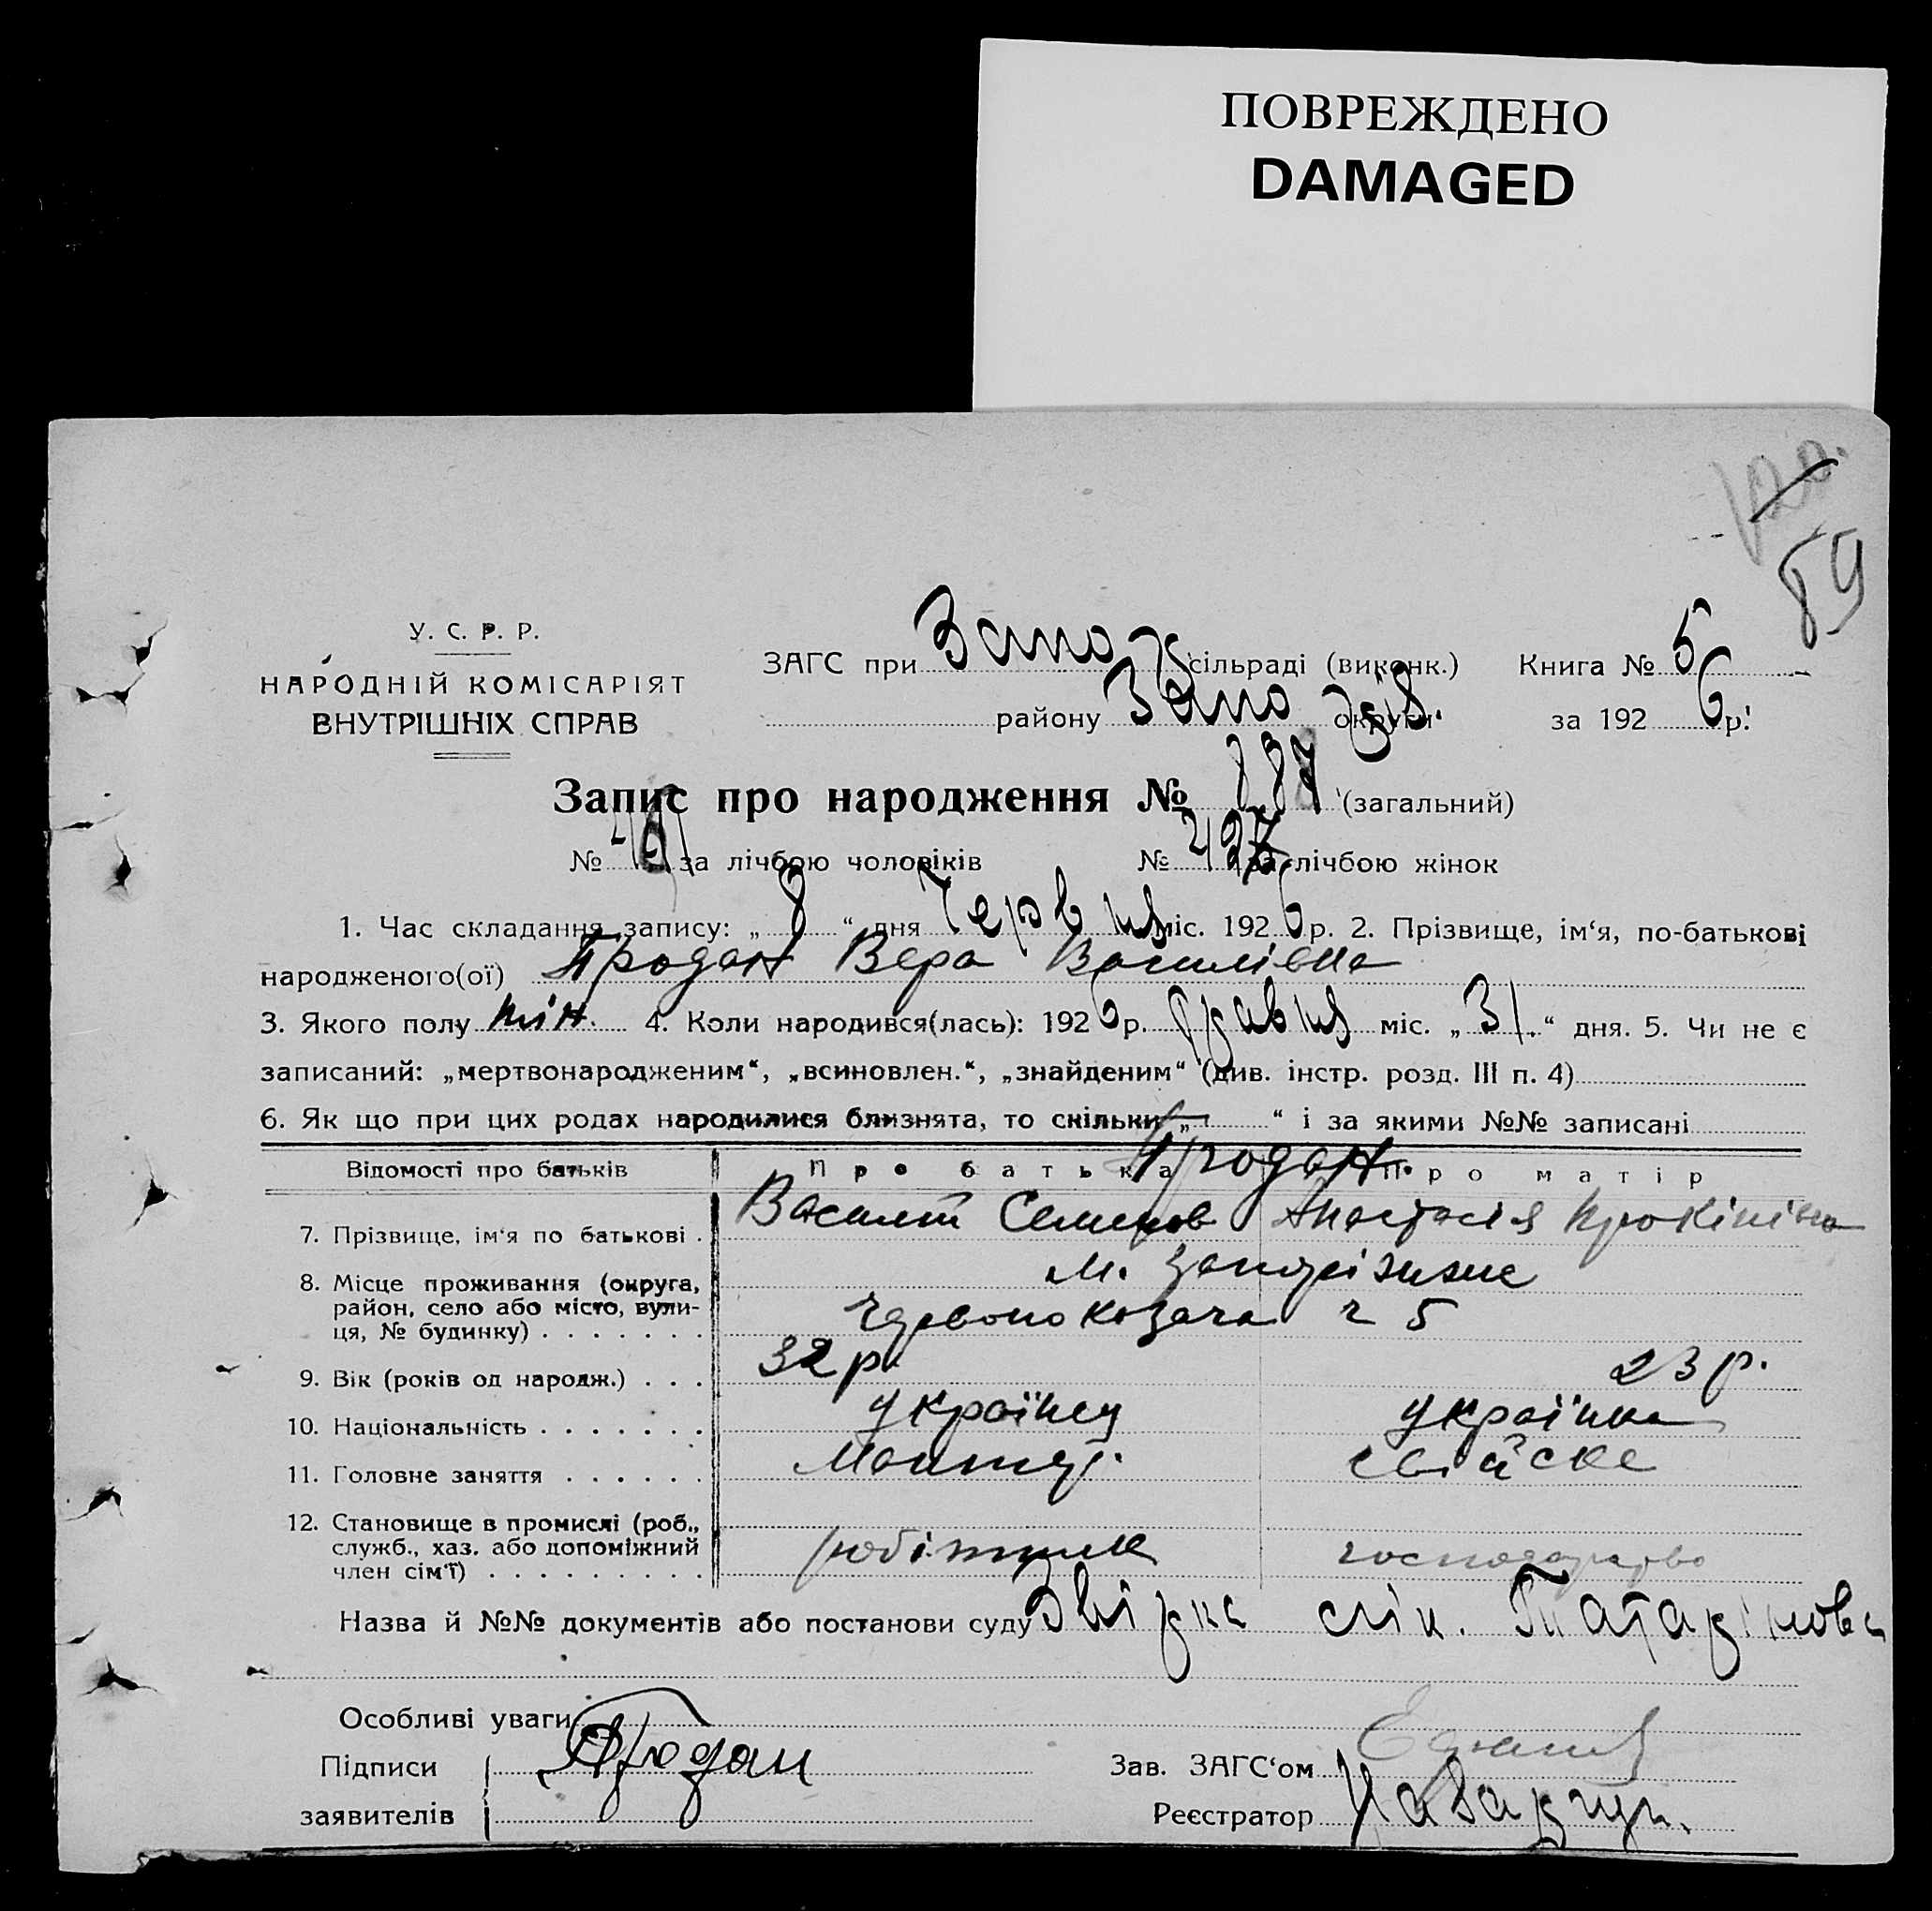 ПОВРЕЖДЕНО
DAMAGED
120.
89
У. С. Р. Р.
НАРОДНІЙ КОМІСАРІЯТ
ВНУТРІШНІХ СПРАВ
ЗАГС при Запо сільраді (виконк.) Книга № 5
району Запо округи за 192 6 р.
Запис про народження № 887 (загальний)
№ за лічбою чоловіків № 427 за лічбою жінок
1. Час складання запису: „ 8 “ дня Червня міс. 192 6 р. 2. Прізвище, ім‘я, по-батькові
народженого(ої) Продан Вера Василівна
3. Якого полу жін. 4. Коли народився(лась): 192 6 р. Травня міс. „ 31 “ дня. 5. Чи не є
записаний: „мертвонародженим“, „всиновлен.“, „знайденим“ (див. інстр. розд. III п. 4)
6. Як що при цих родах народилися близнята, то скільки „ “ і за якими №№ записані
Відомості про батьків Про батька Продан. Про матір
7. Прізвище, ім‘я по батькові . Василь Семенов Анастасія
8. Місце проживання (округа, м. Запоріжжя
район, село або місто, вули-
ця, № будинку) . . . . . . . Червонокозача ч 5
9. Вік (років од народж.) . . . 32 р. 23 р.
10. Національність . . . . . . . українец українка
11. Головне заняття . . . . . . Монтер. свійске
12. Становище в промислі (роб.,
служб., хаз. або допоміжний робітник господарство
член сім‘ї) . . . . . . . . . .
Назва й №№ документів або постанови суду Звірка слік. Татарінова
Особливі уваги
Підписи Продан Зав. ЗАГС‘ом
заявителів Реєстратор